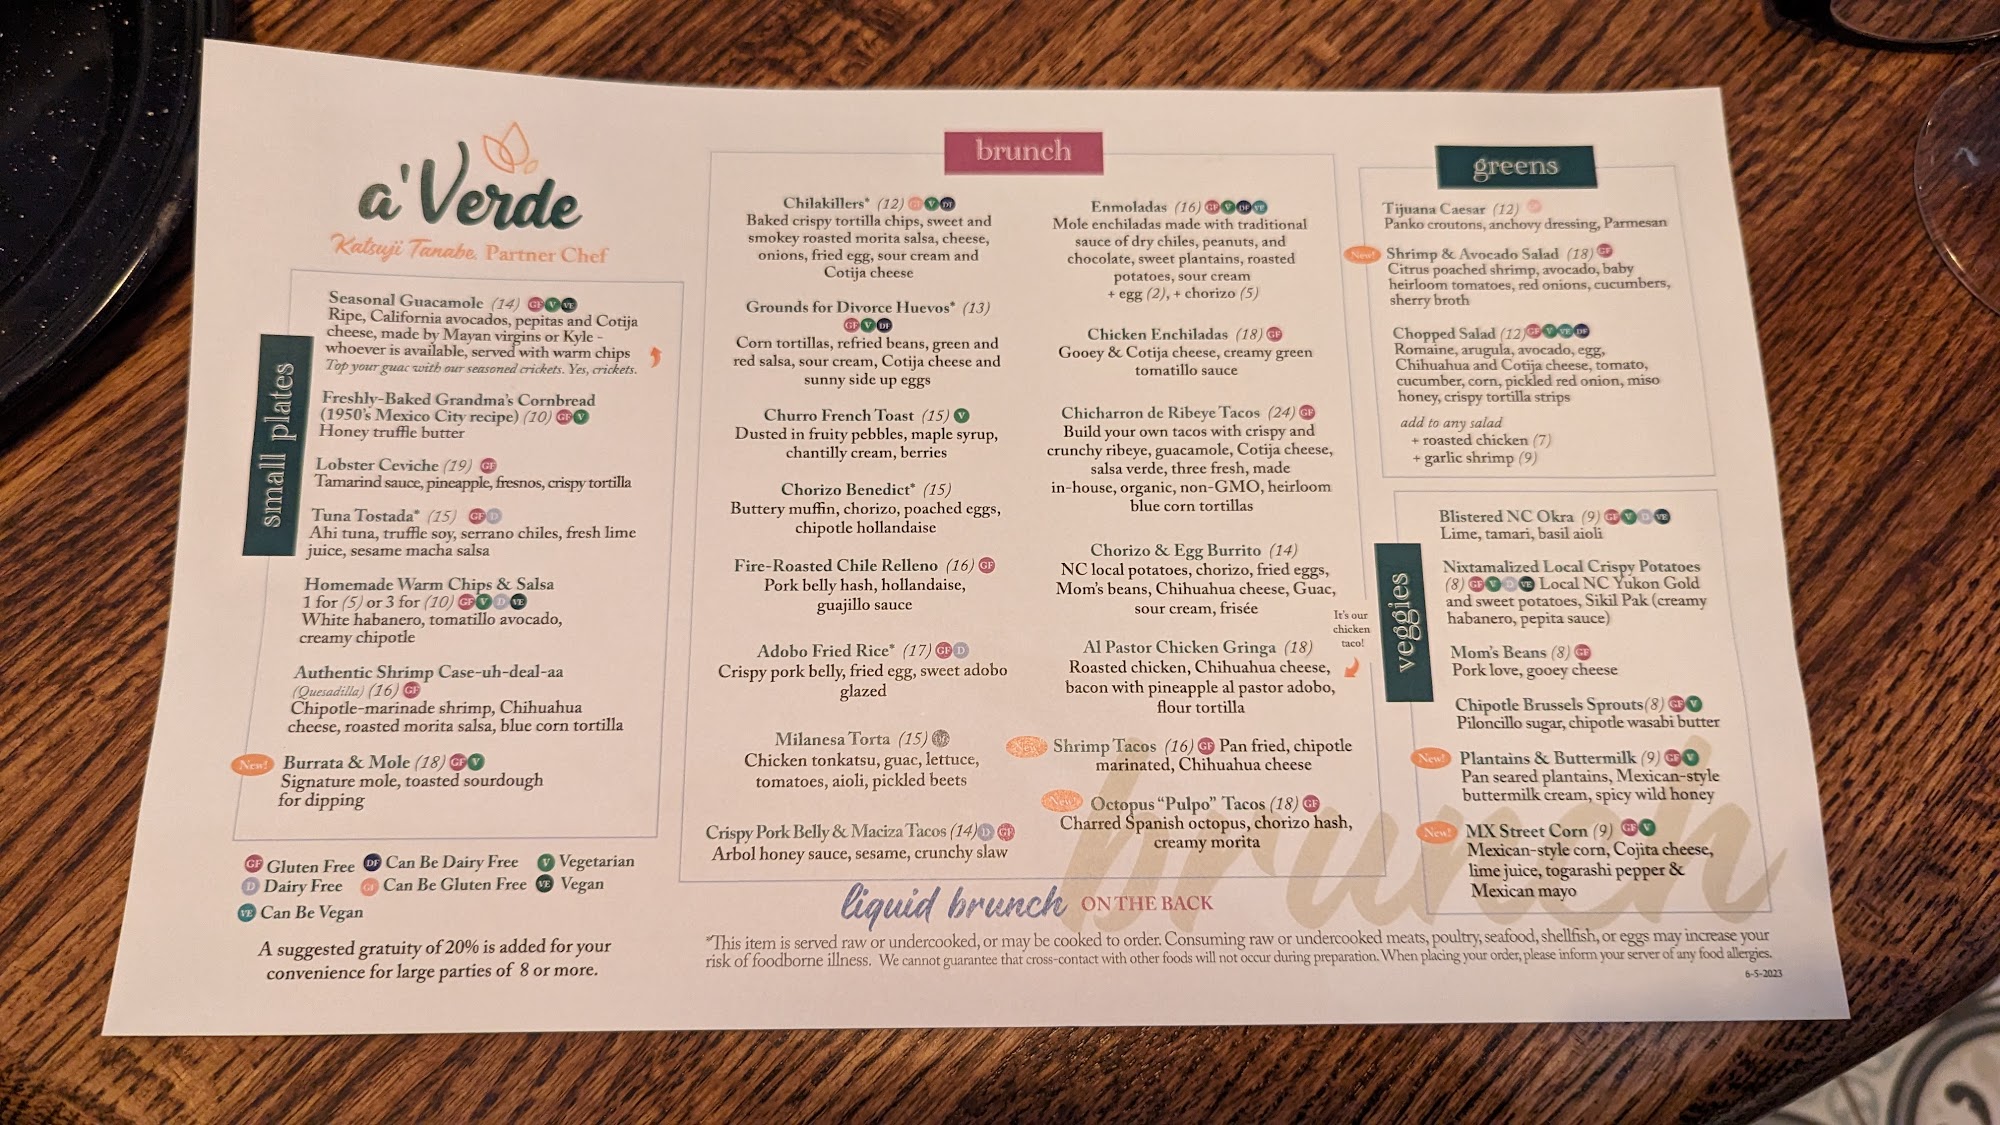 a'Verde
Katsuji Tanabe, Partner Chef
small plates
Seasonal Guacamole (14) GF V VE
Ripe, California avocados, pepitas and Cotija
cheese, made by Mayan virgins or Kyle -
whoever is available, served with warm chips
Top your guac with our seasoned crickets. Yes, crickets.
Freshly-Baked Grandma's Cornbread
(1950's Mexico City recipe) (10) GF V
Honey truffle butter
Lobster Ceviche (19) GF
Tamarind sauce, pineapple, fresnos, crispy tortilla
Tuna Tostada* (15) GF D
Ahi tuna, truffle soy, serrano chiles, fresh lime
juice, sesame macha salsa
Homemade Warm Chips & Salsa
1 for (5) or 3 for (10) GF V D VE
White habanero, tomatillo avocado,
creamy chipotle
Authentic Shrimp Case-uh-deal-aa
(Quesadilla) (16) GF
Chipotle-marinade shrimp, Chihuahua
cheese, roasted morita salsa, blue corn tortilla
New! Burrata & Mole (18) GF V
Signature mole, toasted sourdough
for dipping
GF Gluten Free DF Can Be Dairy Free V Vegetarian
D Dairy Free GF Can Be Gluten Free VE Vegan
VE Can Be Vegan
A suggested gratuity of 20% is added for your
convenience for large parties of 8 or more.
brunch
Chilakillers* (12) GF V DF
Baked crispy tortilla chips, sweet and
smokey roasted morita salsa, cheese,
onions, fried egg, sour cream and
Cotija cheese
Grounds for Divorce Huevos* (13)
GF V DF
Corn tortillas, refried beans, green and
red salsa, sour cream, Cotija cheese and
sunny side up eggs
Churro French Toast (15) V
Dusted in fruity pebbles, maple syrup,
chantilly cream, berries
Chorizo Benedict* (15)
Buttery muffin, chorizo, poached eggs,
chipotle hollandaise
Fire-Roasted Chile Relleno (16) GF
Pork belly hash, hollandaise,
guajillo sauce
Adobo Fried Rice* (17) GF D
Crispy pork belly, fried egg, sweet adobo
glazed
Milanesa Torta (15)
Chicken tonkatsu, guac, lettuce,
tomatoes, aioli, pickled beets
Crispy Pork Belly & Maciza Tacos (14) D GF
Arbol honey sauce, sesame, crunchy slaw
Enmoladas (16) GF V DF VE
Mole enchiladas made with traditional
sauce of dry chiles, peanuts, and
chocolate, sweet plantains, roasted
potatoes, sour cream
+ egg (2), + chorizo (5)
Chicken Enchiladas (18) GF
Gooey & Cotija cheese, creamy green
tomatillo sauce
Chicharron de Ribeye Tacos (24) GF
Build your own tacos with crispy and
crunchy ribeye, guacamole, Cotija cheese,
salsa verde, three fresh, made
in-house, organic, non-GMO, heirloom
blue corn tortillas
Chorizo & Egg Burrito (14)
NC local potatoes, chorizo, fried eggs,
Mom's beans, Chihuahua cheese, Guac,
sour cream, frisée
It's our
chicken
taco!
Al Pastor Chicken Gringa (18)
Roasted chicken, Chihuahua cheese,
bacon with pineapple al pastor adobo,
flour tortilla
New! Shrimp Tacos (16) GF Pan fried, chipotle
marinated, Chihuahua cheese
New! Octopus "Pulpo" Tacos (18) GF
Charred Spanish octopus, chorizo hash,
creamy morita
liquid brunch ON THE BACK
greens
Tijuana Caesar (12)
Panko croutons, anchovy dressing, Parmesan
New! Shrimp & Avocado Salad (18) GF
Citrus poached shrimp, avocado, baby
heirloom tomatoes, red onions, cucumbers,
sherry broth
Chopped Salad (12) GF V VE DF
Romaine, arugula, avocado, egg,
Chihuahua and Cotija cheese, tomato,
cucumber, corn, pickled red onion, miso
honey, crispy tortilla strips
add to any salad
+ roasted chicken (7)
+ garlic shrimp (9)
veggies
Blistered NC Okra (9) GF V D VE
Lime, tamari, basil aioli
Nixtamalized Local Crispy Potatoes
(8) GF V D VE Local NC Yukon Gold
and sweet potatoes, Sikil Pak (creamy
habanero, pepita sauce)
Mom's Beans (8) GF
Pork love, gooey cheese
Chipotle Brussels Sprouts (8) GF V
Piloncillo sugar, chipotle wasabi butter
New! Plantains & Buttermilk (9) GF V
Pan seared plantains, Mexican-style
buttermilk cream, spicy wild honey
New! MX Street Corn (9) GF V
Mexican-style corn, Cojita cheese,
lime juice, togarashi pepper &
Mexican mayo
brunch
*This item is served raw or undercooked, or may be cooked to order. Consuming raw or undercooked meats, poultry, seafood, shellfish, or eggs may increase your
risk of foodborne illness. We cannot guarantee that cross-contact with other foods will not occur during preparation. When placing your order, please inform your server of any food allergies.
6-5-2023